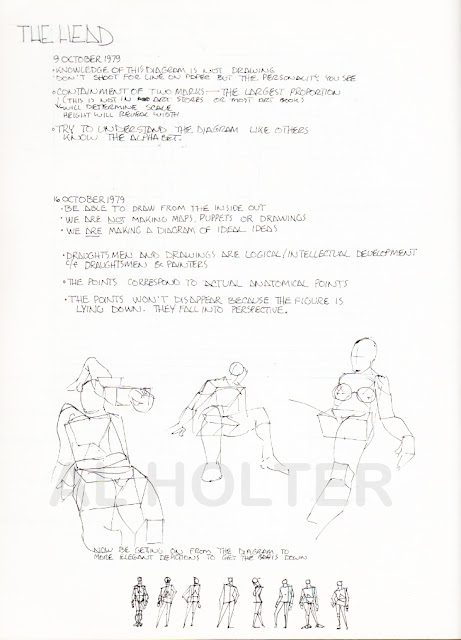 THE HEAD
9 OCTOBER 1979
• KNOWLEDGE OF THIS DIAGRAM IS NOT DRAWING
• DON'T SHOOT FOR LINE ON PAPER BUT THE PERSONALITY YOU SEE
• CONTAINMENT OF TWO MARKS — THE LARGEST PROPORTION
(THIS IS NOT IN ART STORES OR MOST ART BOOKS)
WILL DETERMINE SCALE
HEIGHT WILL REVEAL WIDTH
• TRY TO UNDERSTAND THE DIAGRAM LIKE OTHERS
KNOW THE ALPHABET.
16 OCTOBER 1979
• BE ABLE TO DRAW FROM THE INSIDE OUT
• WE ARE NOT MAKING MAPS, PUPPETS OR DRAWINGS
• WE ARE MAKING A DIAGRAM OF IDEAL IDEAS
• DRAUGHTSMEN AND DRAWINGS ARE LOGICAL/INTELLECTUAL DEVELOPMENT
c/f DRAUGHTSMEN & PAINTERS
• THE POINTS CORRESPOND TO ACTUAL ANATOMICAL POINTS
• THE POINTS WON'T DISAPPEAR BECAUSE THE FIGURE IS
LYING DOWN. THEY FALL INTO PERSPECTIVE.
AL HOLTER
NOW BE GETING ON FROM THE DIAGRAM TO
MORE ELEGANT DEPICTIONS TO GET THE DOWN